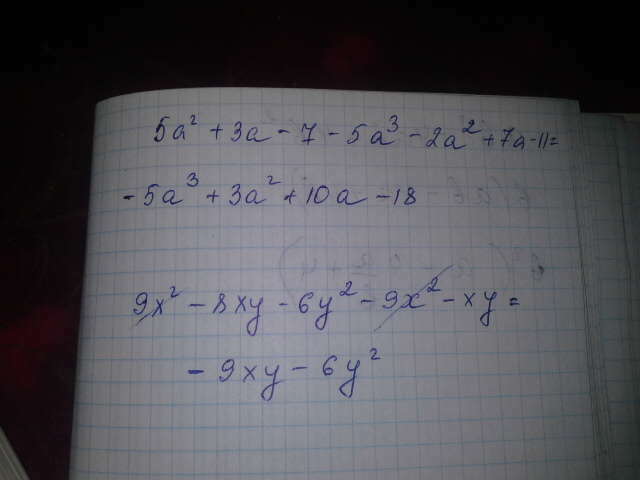 5a² + 3a - 7 - 5a³ - 2a² + 7a - 11 =
- 5a³ + 3a² + 10a - 18
9x² - 8xy - 6y² - 9x² - xy =
- 9xy - 6y²